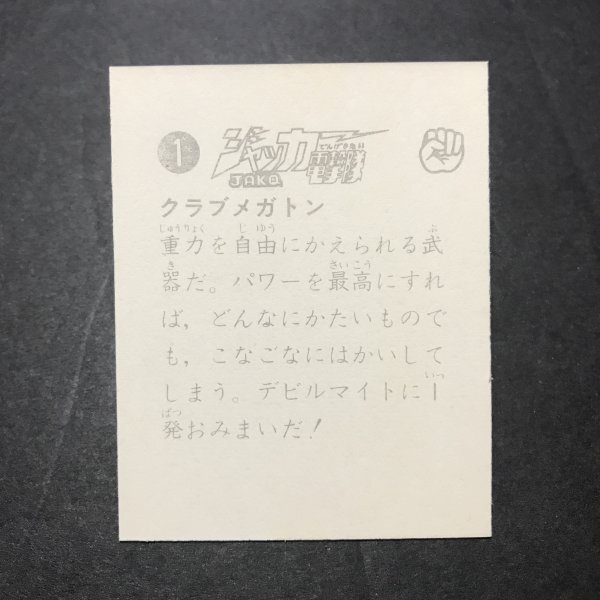 1
ジャッカー
でんげきたい
電撃隊
JAKQ
クラブメガトン
じゅうりょく じゆう ぶ
重力を自由にかえられる武
き さいこう
器だ。パワーを最高にすれ
ば，どんなにかたいもので
も，こなごなにはかいして
いっ
しまう。デビルマイトに1
ぱつ
発おみまいだ！